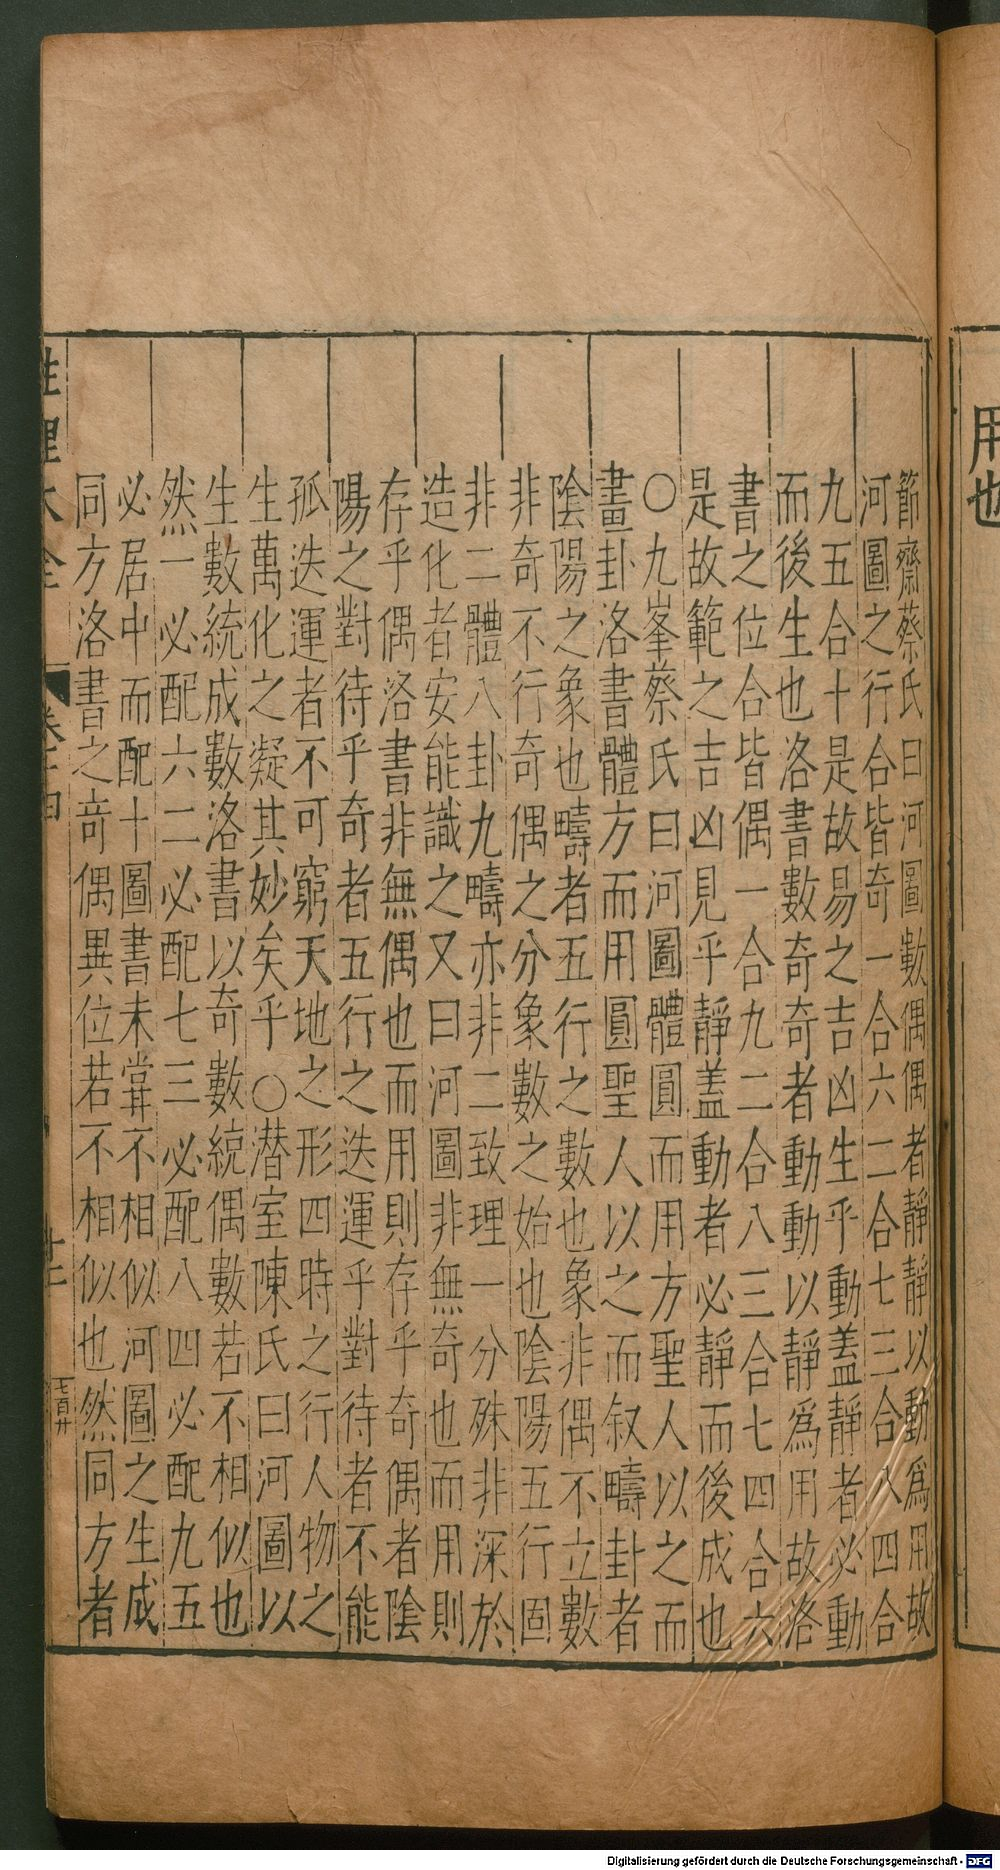 用也
節齋蔡氏曰河圖數偶偶者靜靜以動爲用故
河圖之行合皆奇一合六二合七三合八四合
九五合十是故易之吉凶生乎動蓋靜者必動
而後生也洛書數奇奇者動動以靜爲用故洛
書之位合皆偶一合九二合八三合七四合六
是故範之吉凶見乎靜蓋動者必靜而後成也
○九峯蔡氏曰河圖體圓而用方聖人以之而
畫卦洛書體方而用圓聖人以之而叙疇卦者
陰陽之象也疇者五行之數也象非偶不立數
非奇不行奇偶之分象數之始也陰陽五行固
非二體八卦九疇亦非二致理一分殊非深於
造化者安能識之又曰河圖非無奇也而用則
存乎偶洛書非無偶也而用則存乎奇偶者陰
陽之對待乎奇者五行之迭運乎對待者不能
孤迭運者不可窮天地之形四時之行人物之
生萬化之凝其妙矣乎○潜室陳氏曰河圖以
生數統成數洛書以奇數統偶數若不相似也
然一必配六二必配七三必配八四必配九五
必居中而配十圖書未嘗不相似河圖之生成
同方洛書之竒偶異位若不相似也然同方者
性理大全 卷十四 廿二 七百廿
Digitalisierung gefördert durch die Deutsche Forschungsgemeinschaft - DFG